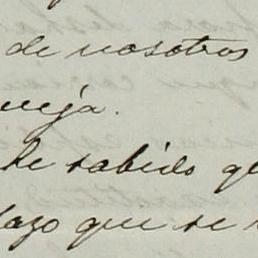 de nosotros
ueja.
he sabido q
lazo que se